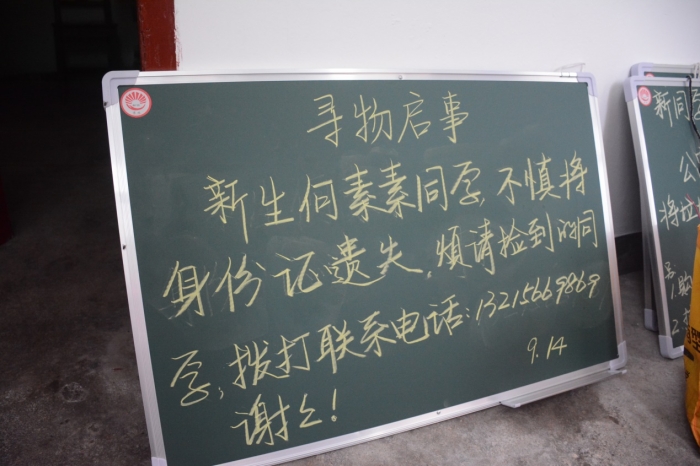 寻物启事
新生何素素同学,不慎将
身份证遗失,烦请捡到的同
学,拨打联系电话:13215669869
谢么!
9.14
新同学
公
将
1.
2.